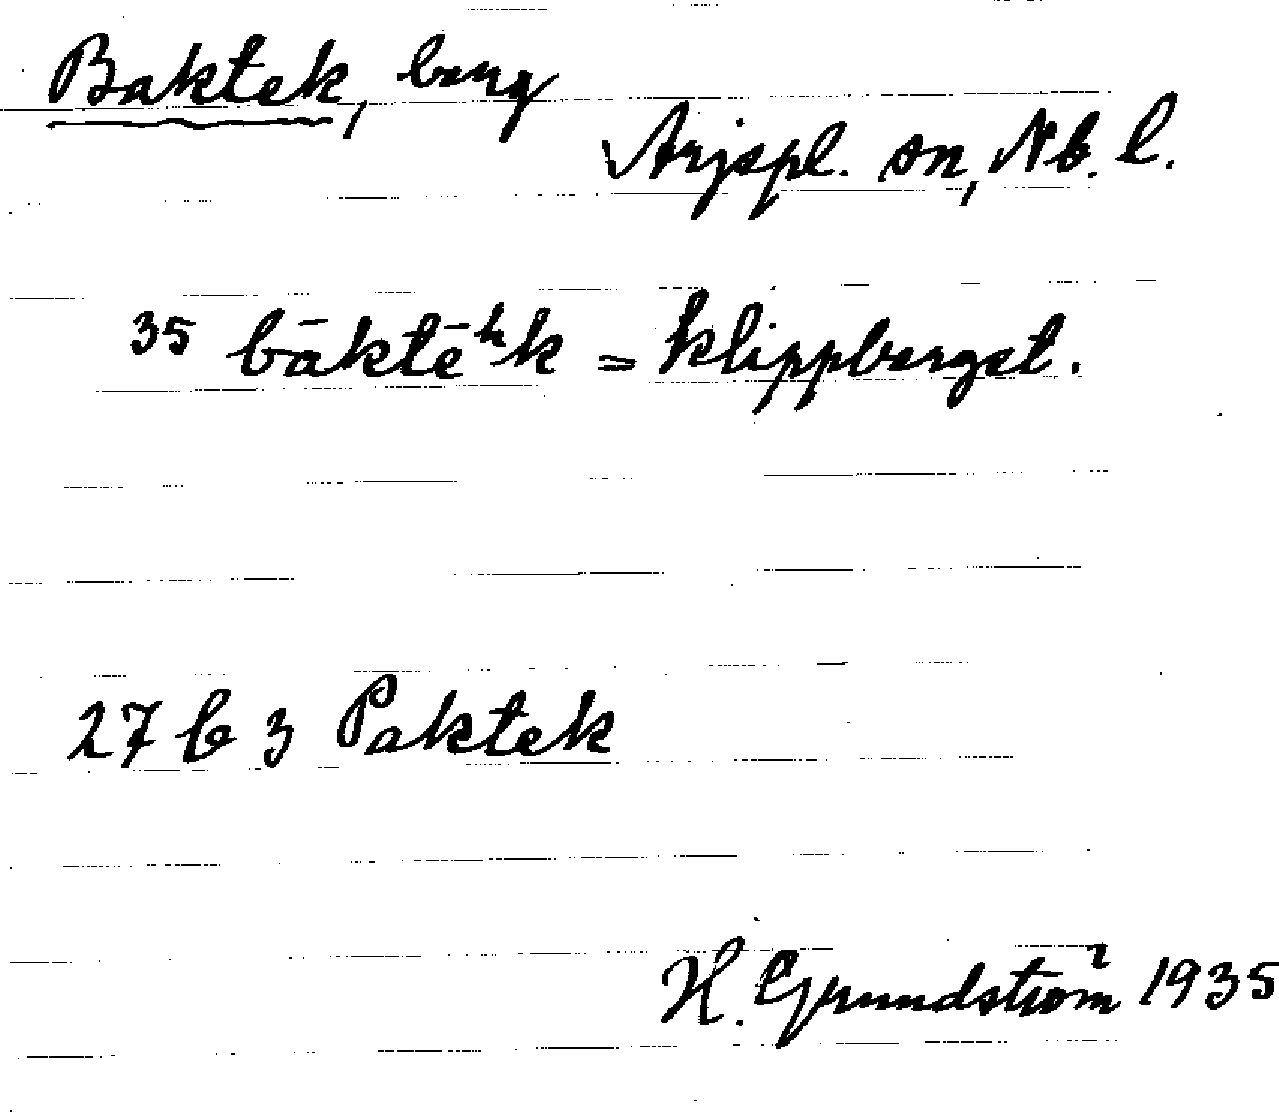 Baktek, berg
Arjspl. sn, Nb. l.
35 bāktēʰk = klippberget.
27 b 3 Paktek
H. Grundström 1935